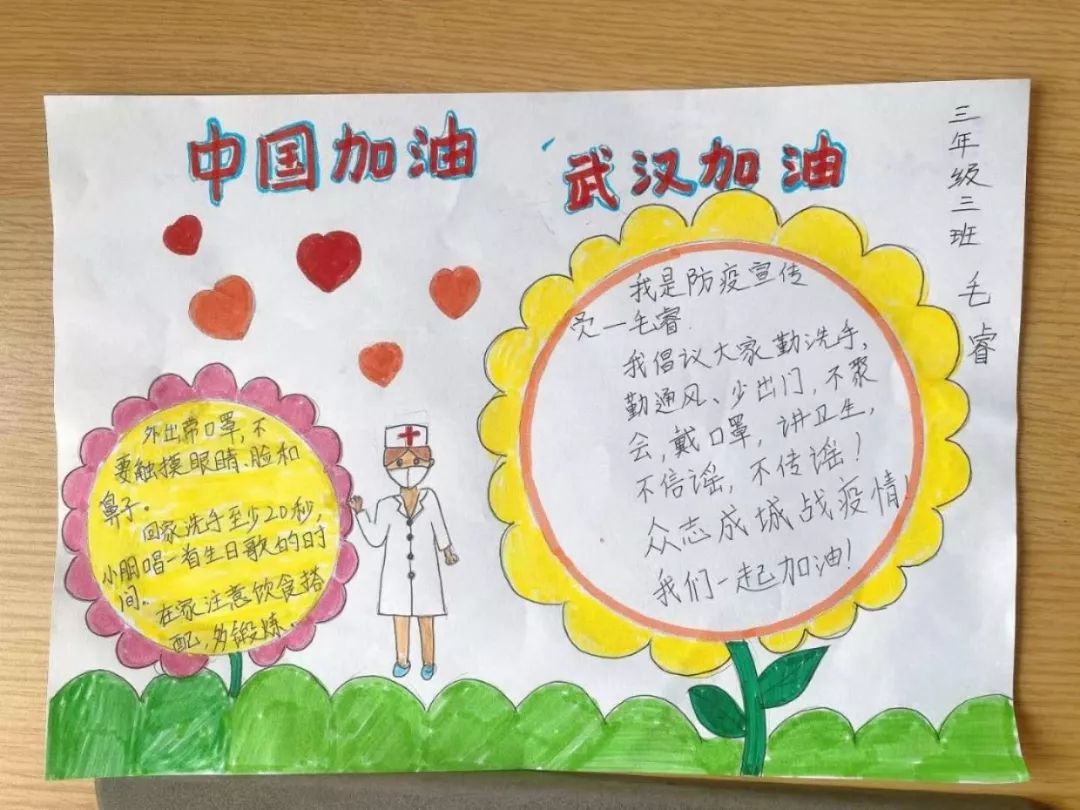 中国加油
武汉加油
三年级三班 毛睿
我是防疫宣传
员一毛睿.
我倡议大家勤洗手,
勤通风、少出门,不聚
会,戴口罩,讲卫生,
不信谣,不传谣!
众志成城战疫情!
我们一起加油!
外出带口罩,不
要触摸眼睛、脸和
鼻子。
回家洗手至少20秒,
小朋唱一首生日歌的时
间.
在家注意饮食搭
配,多锻炼.